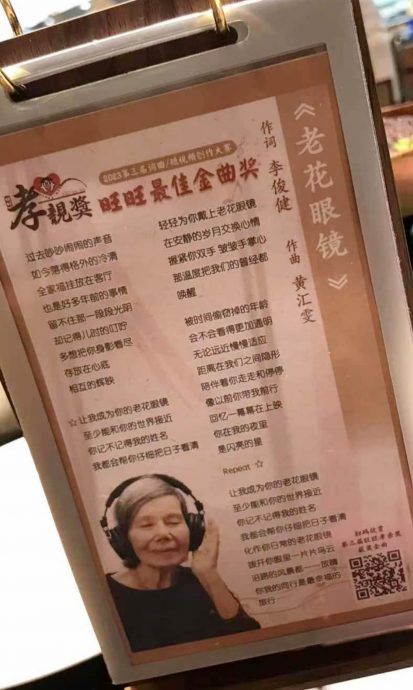 《老花眼镜》
作词 李俊健
作曲 黄汇雯
2023第三届词曲/短视频创作大赛
孝親獎 旺旺最佳金曲奖
过去吵吵闹闹的声音
如今落得格外的冷清
全家福挂放在客厅
也是好多年前的事情
留不住那一段段光阴
却记得儿时的叮咛
多想把你身影看尽
存放在心底
相互的辉映
☆ 让我成为你的老花眼镜
至少能和你的世界接近
你记不记得我的姓名
我都会帮你仔细把日子看清
轻轻为你戴上老花眼镜
在安静的岁月交换心情
握紧你双手 皱皱手掌心
那温度把我们的曾经都
唤醒
被时间偷窃掉的年龄
会不会看得更加通明
无论远近慢慢适应
距离在我们之间隐形
陪伴着你走走和停停
像以前你带我前行
回忆一幕幕在上映
你在我的夜里
是闪亮的星
Repeat ☆
让我成为你的老花眼镜
至少能和你的世界接近
你记不记得我的姓名
我都会帮你仔细把日子看清
化作你日常的老花眼镜
拨开你眼里一片片乌云
沿路的风景都一一放晴
你我的同行是最幸福的
旅行
扫码欣赏
第三届旺旺孝亲奖
获奖金曲